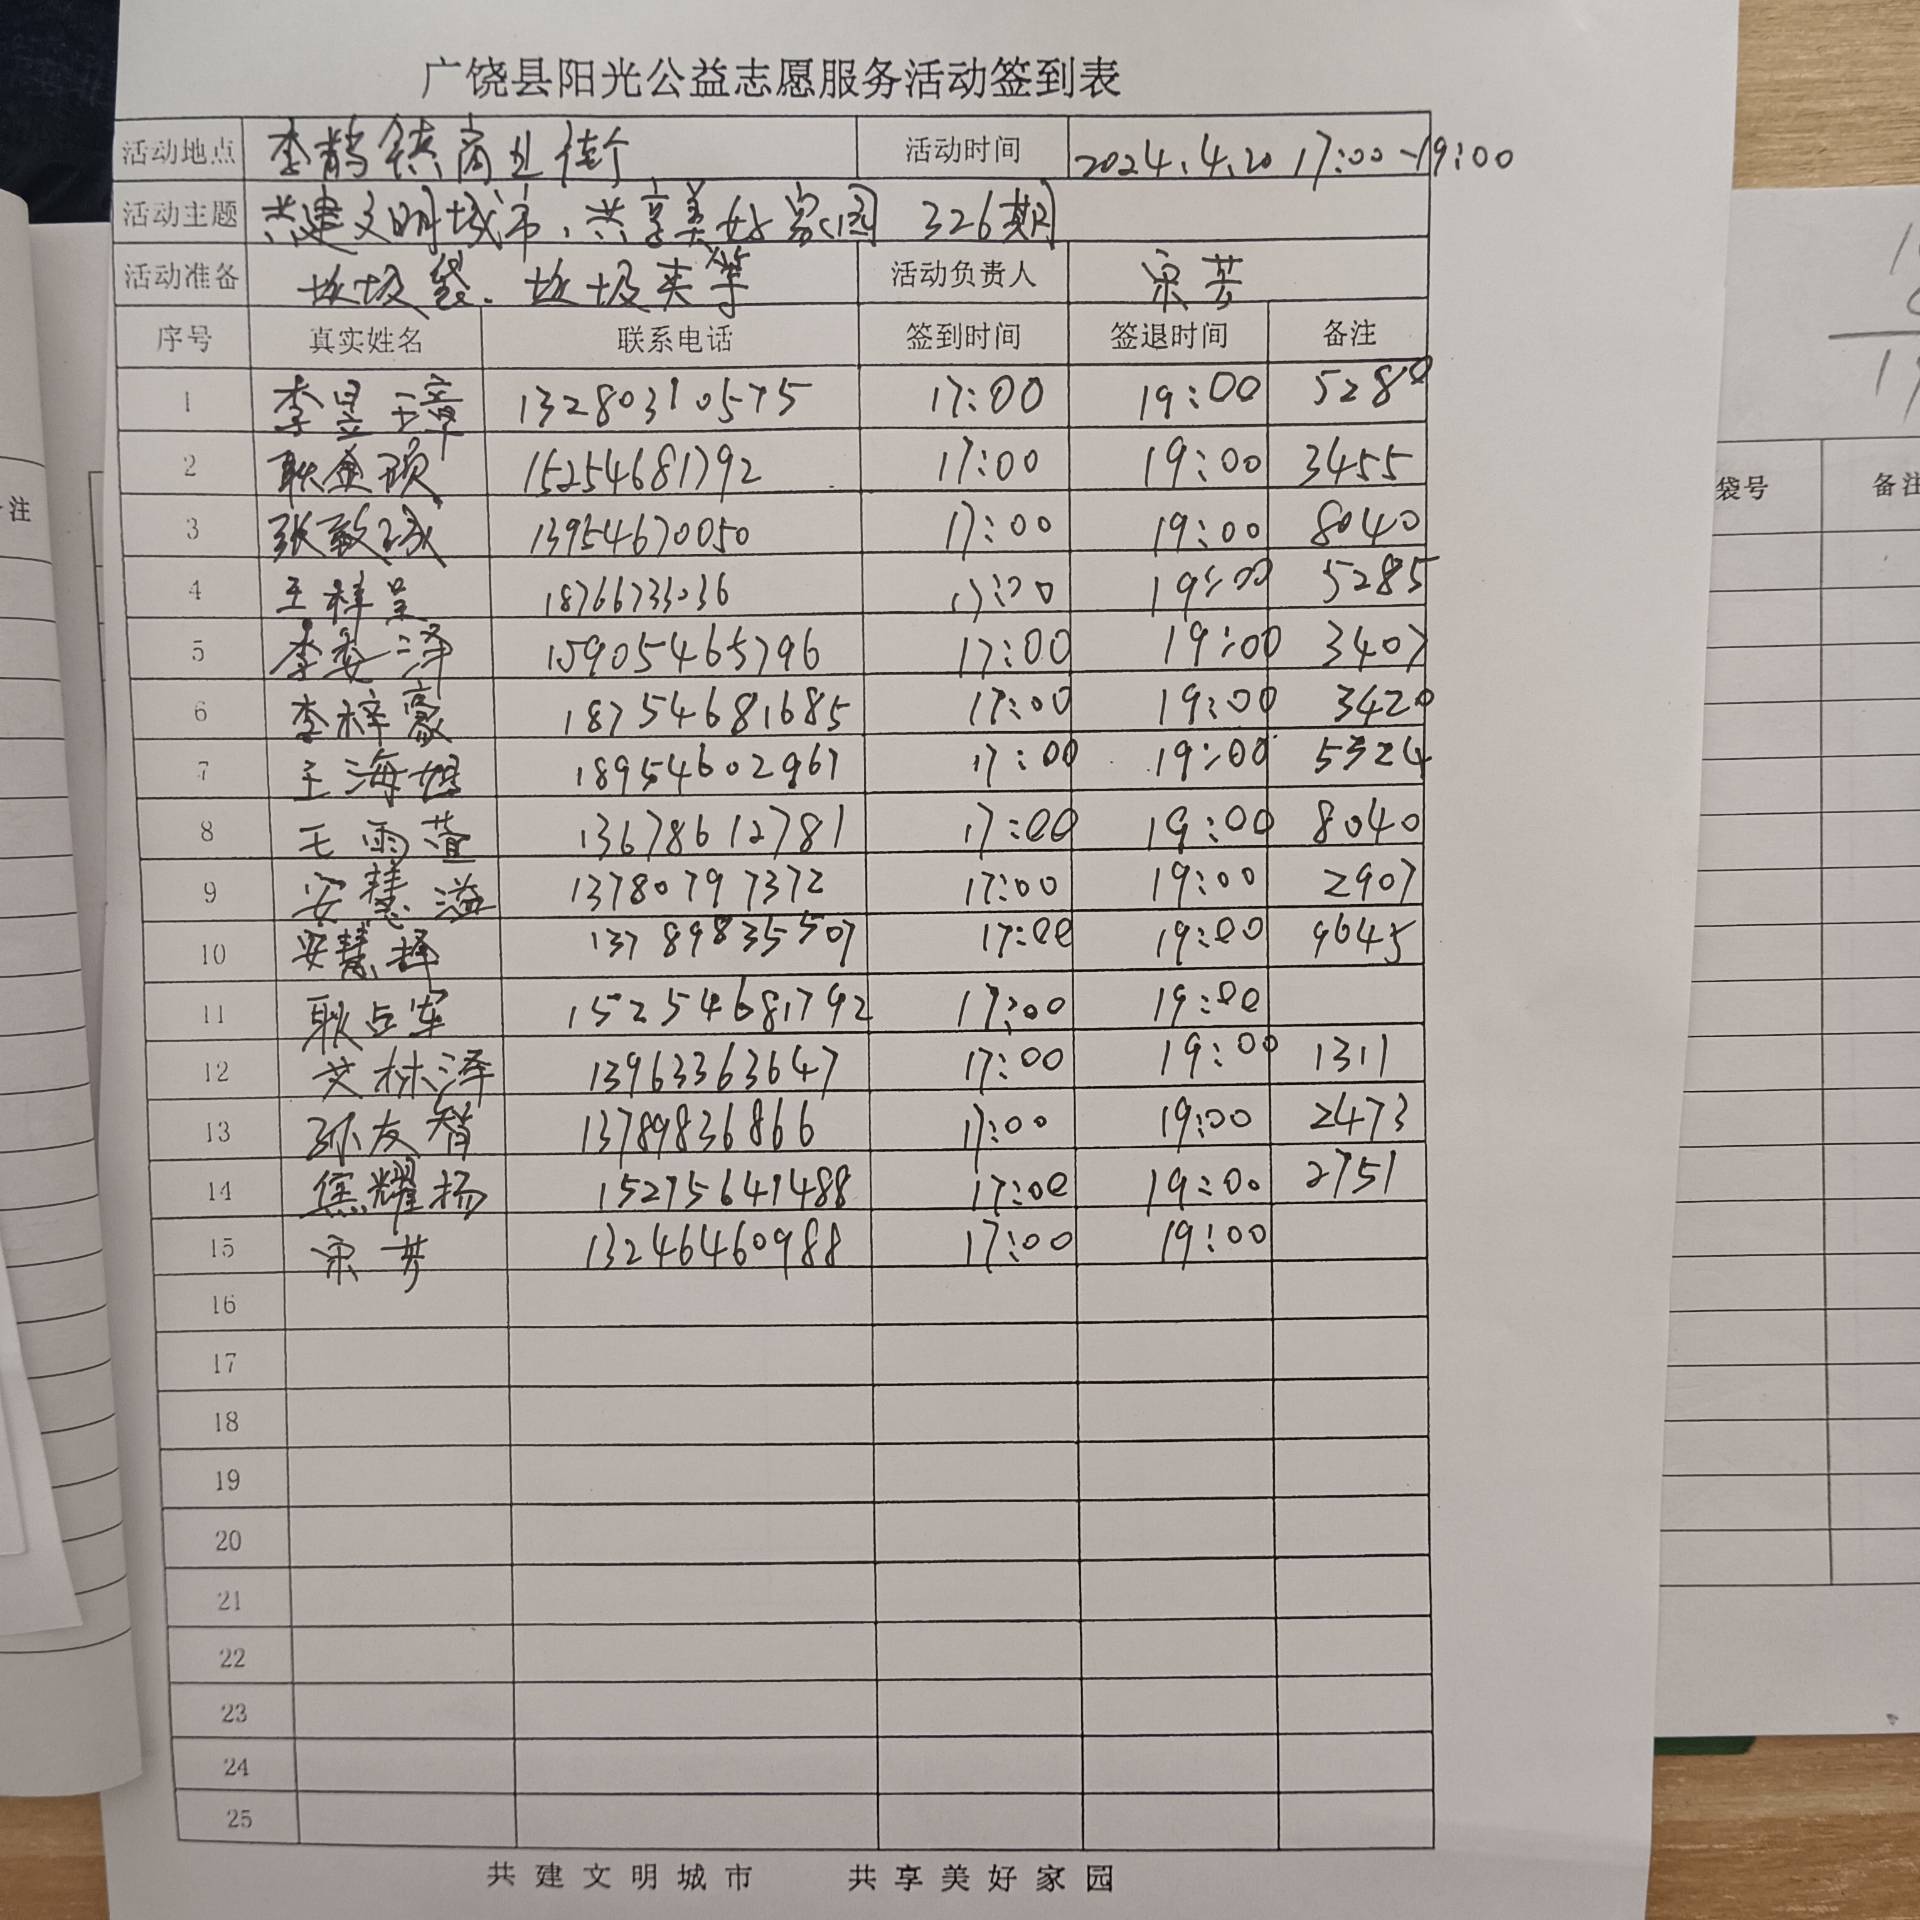 广饶县阳光公益志愿服务活动签到表
活动地点 李鹊镇商业街 活动时间 2024.4.20 17:00-19:00
活动主题 共建文明城市、共享美好家园 326期
活动准备 垃圾袋、垃圾夹等 活动负责人 宋芳
序号 真实姓名 联系电话 签到时间 签退时间 备注
1 李昱璋 13280310575 17:00 19:00 5280
2 耿金硕 15254681792 17:00 19:00 3455
3 张毅诚 13954670050 17:00 19:00 8040
4 王梓呈 18766733036 17:00 19:00 5285
5 李安泽 15905465796 17:00 19:00 3407
6 李梓豪 18754681685 17:00 19:00 3420
7 王海 18954602967 17:00 19:00 5324
8 王雨萱 13678612781 17:00 19:00 8040
9 安慧溢 13780797372 17:00 19:00 2907
10 安慧择 13789835507 17:00 19:00 9645
11 耿占军 15254681792 17:00 19:00
12 艾林泽 13963363647 17:00 19:00 1311
13 孙友智 13789836866 17:00 19:00 2473
14 焦耀扬 15275647488 17:00 19:00 2751
15 宋芳 13246460988 17:00 19:00
16
17
18
19
20
21
22
23
24
25
共建文明城市 共享美好家园
注
袋号 备注